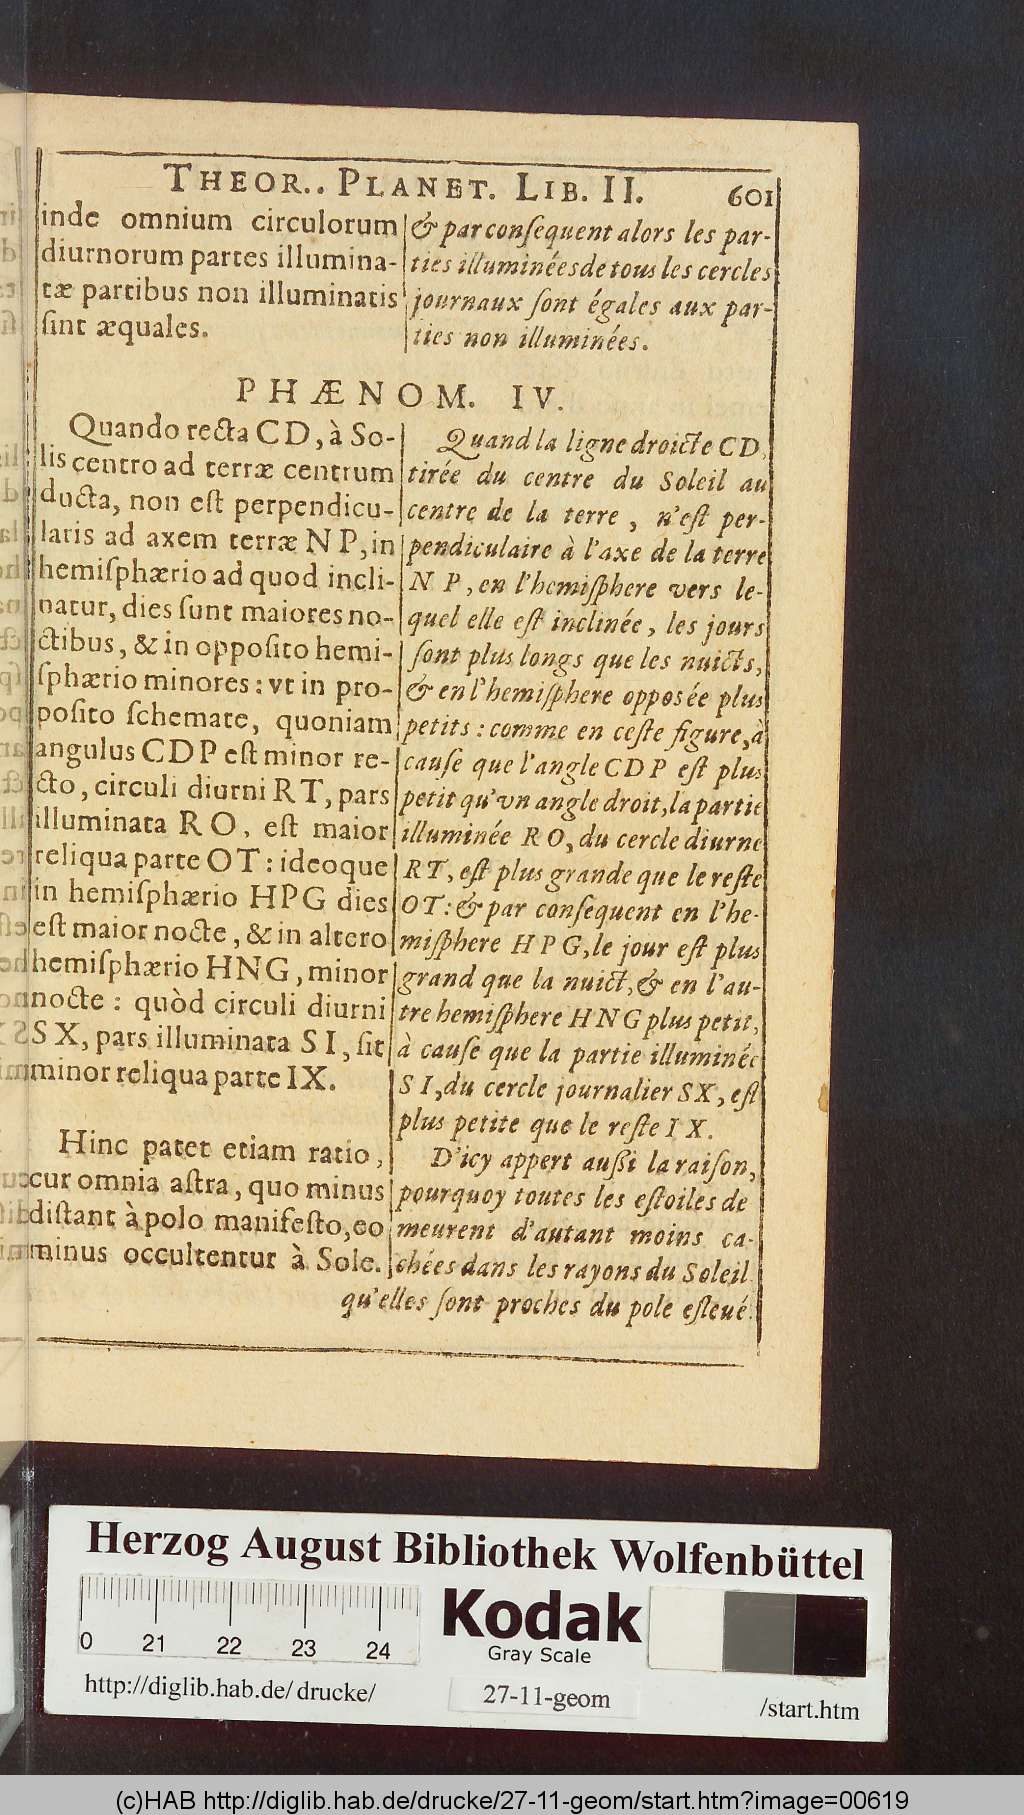 THEOR.. PLANET. LIB. II. 601
inde omnium circulorum
diurnorum partes illumina-
tæ partibus non illuminatis
ſint æquales.
& par conſequent alors les par-
ties illuminées de tous les cercles
journaux ſont égales aux par-
ties non illuminées.
PHÆNOM. IV.
Quando recta CD, à So-
lis centro ad terræ centrum
ducta, non eſt perpendicu-
laris ad axem terræ NP, in
hemiſphærio ad quod incli-
natur, dies ſunt maiores no-
ctibus, & in oppoſito hemi-
ſphærio minores: vt in pro-
poſito ſchemate, quoniam
angulus CDP eſt minor re-
cto, circuli diurni RT, pars
illuminata RO, eſt maior
reliqua parte OT: ideoque
in hemiſphærio HPG dies
eſt maior nocte, & in altero
hemiſphærio HNG, minor
nocte: quòd circuli diurni
SX, pars illuminata SI, ſit
minor reliqua parte IX.
Hinc patet etiam ratio,
cur omnia aſtra, quo minus
diſtant à polo manifeſto, eo
minus occultentur à Sole.
Quand la ligne droicte CD,
tirée du centre du Soleil au
centre de la terre, n'eſt per-
pendiculaire à l'axe de la terre
NP, en l'hemiſphere vers le-
quel elle eſt inclinée, les jours
ſont plus longs que les nuicts,
& en l'hemiſphere opposée plus
petits: comme en ceſte figure, à
cauſe que l'angle CDP eſt plus
petit qu'vn angle droit, la partie
illuminée RO, du cercle diurne
RT, eſt plus grande que le reſte
OT: & par conſequent en l'he-
miſphere HPG, le jour eſt plus
grand que la nuict, & en l'au-
tre hemiſphere HNG plus petit,
à cauſe que la partie illuminée
SI, du cercle journalier SX, eſt
plus petite que le reſte IX.
D'icy appert auſsi la raiſon,
pourquoy toutes les eſtoiles de
meurent d'autant moins ca-
chées dans les rayons du Soleil
qu'elles ſont proches du pole eſleué.
Herzog August Bibliothek Wolfenbüttel
0 21 22 23 24
Kodak
Gray Scale
http://diglib.hab.de/drucke/ 27-11-geom /start.htm
(c)HAB http://diglib.hab.de/drucke/27-11-geom/start.htm?image=00619